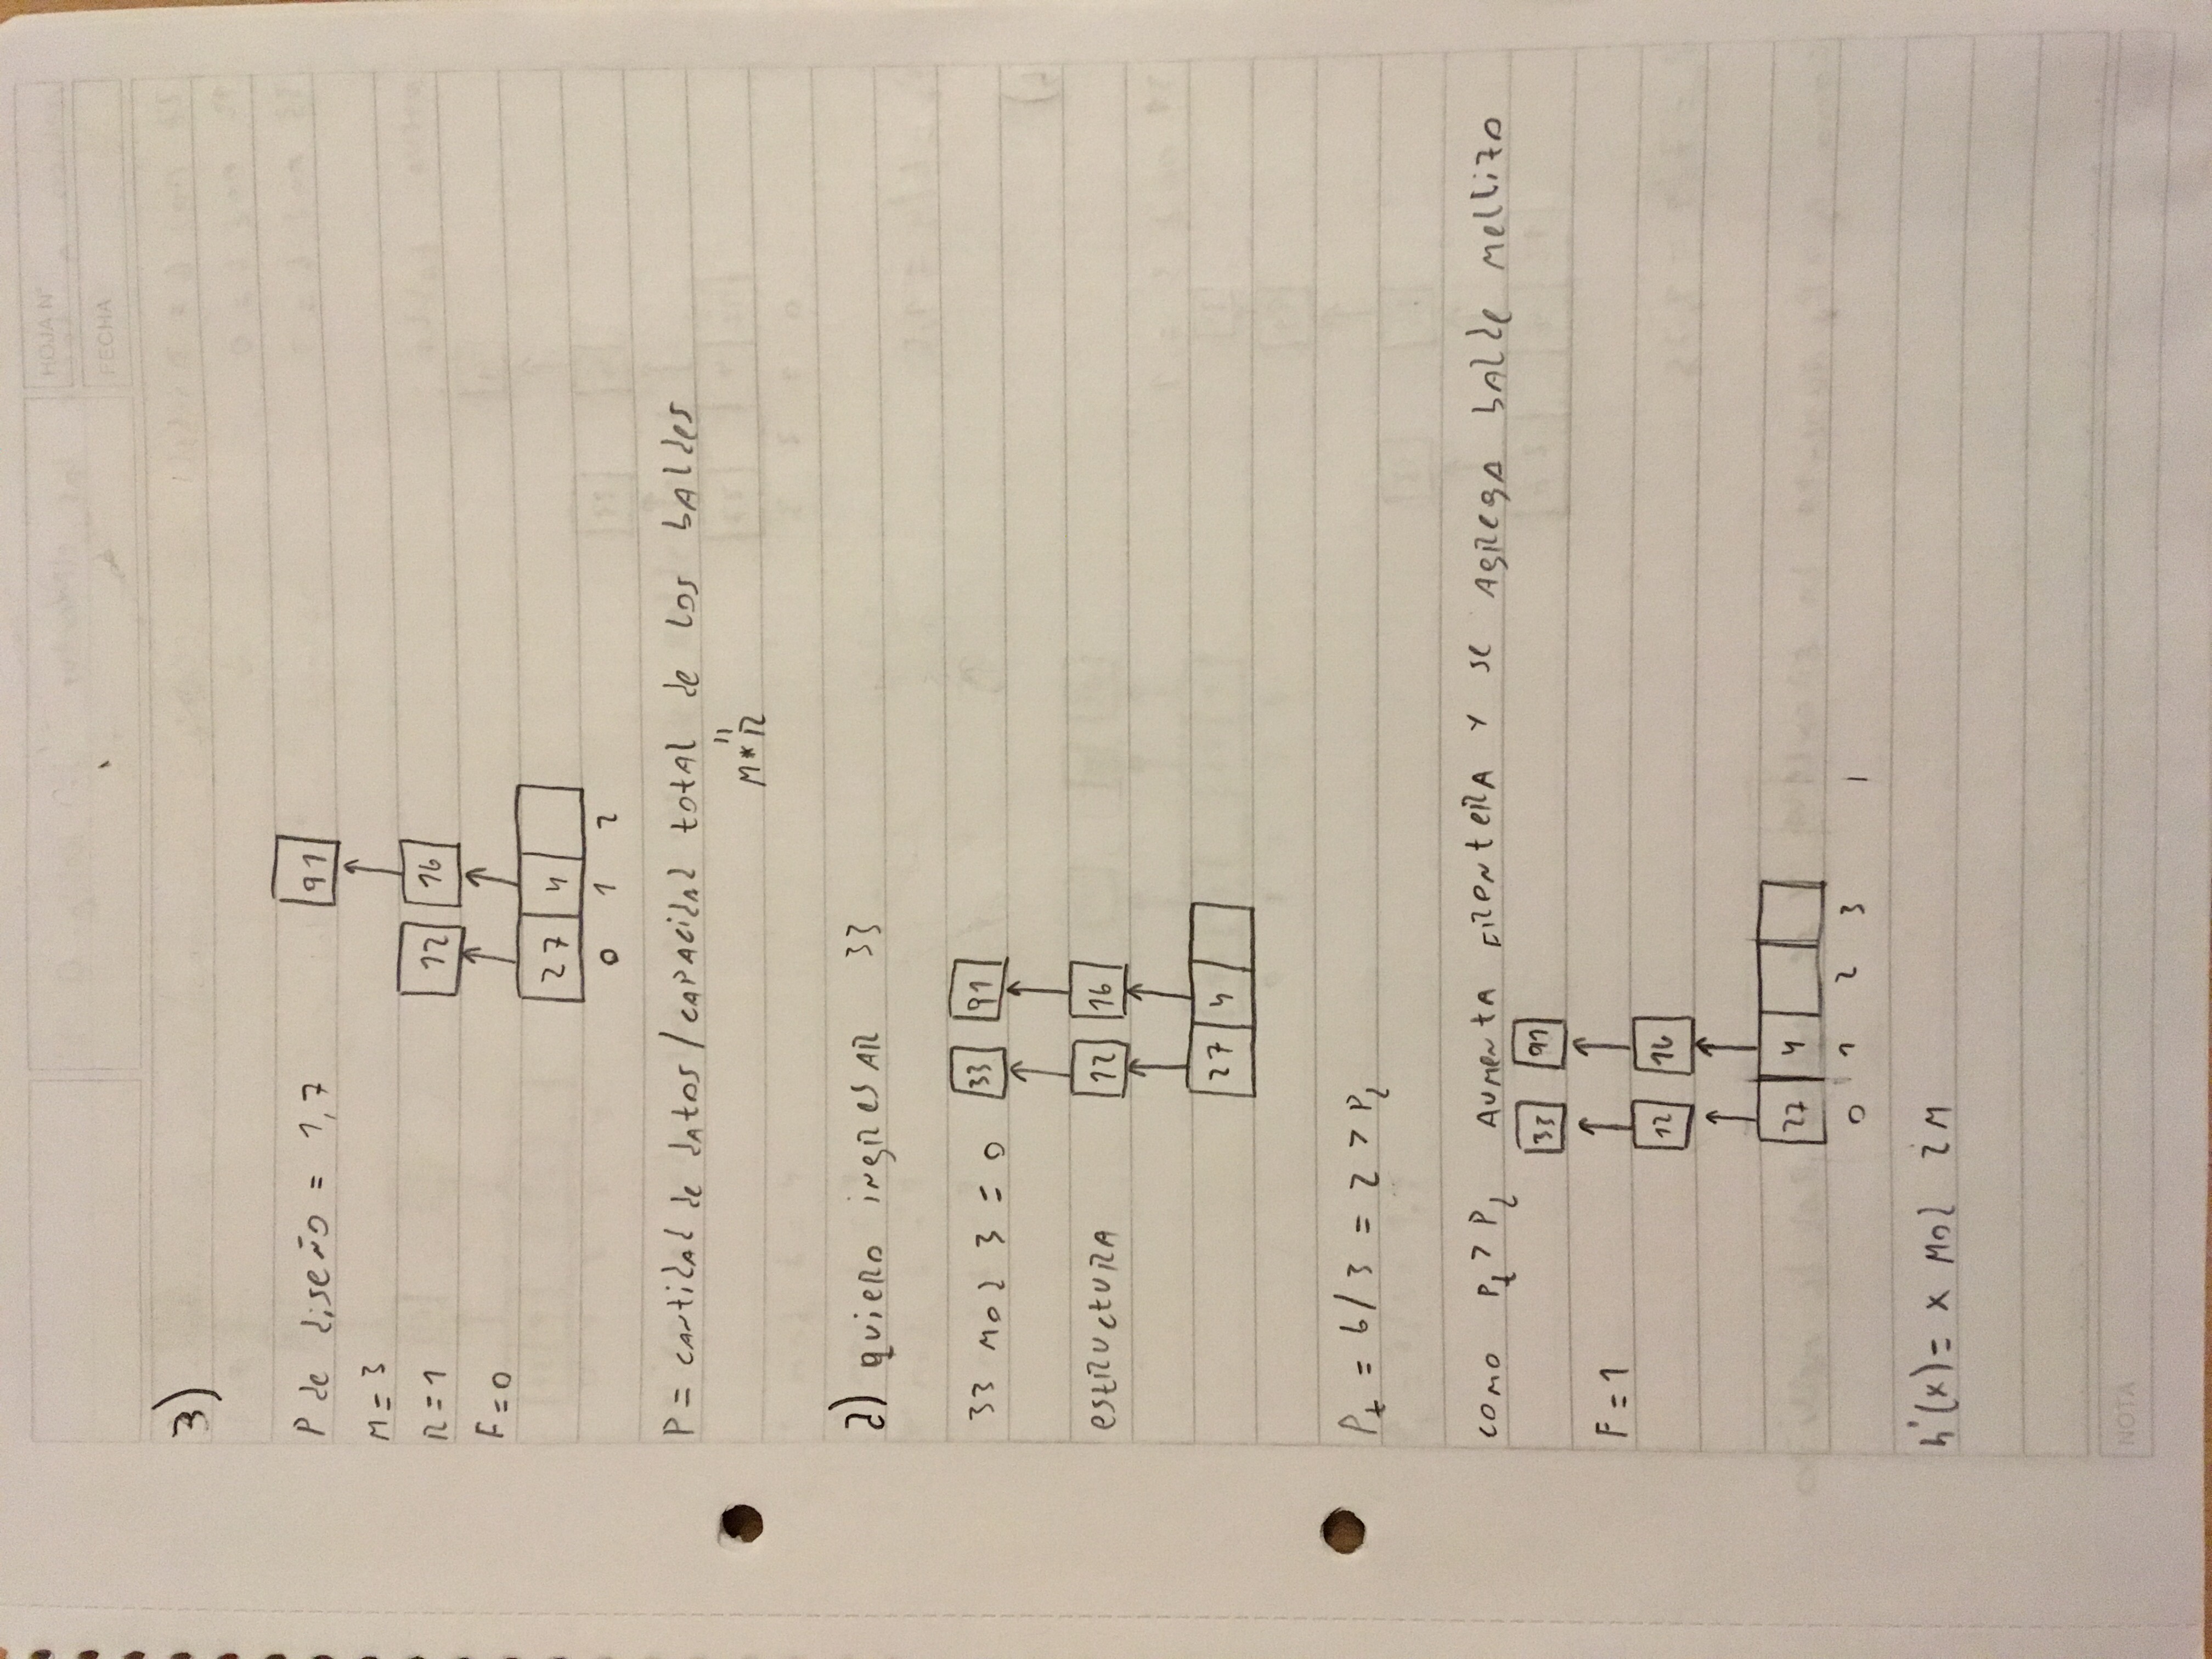 HOJA N°
FECHA
3)
P de diseño = 1,7
M = 3
R = 1
F = 0
91
12 16
27 4
0 1 2
P = cantidad de datos / capacidad total de los baldes
"
M * R
a) quiero ingresar 33
33 mod 3 = 0
33 91
estructura
12 16
27 4
Pt = 6/3 = 2 > Pd
como Pt > Pd aumenta frontera y se agrega balde mellizo
33 91
F = 1
12 16
27 4
0 1 2 3
h'(x) = x mod 2M
NOTA